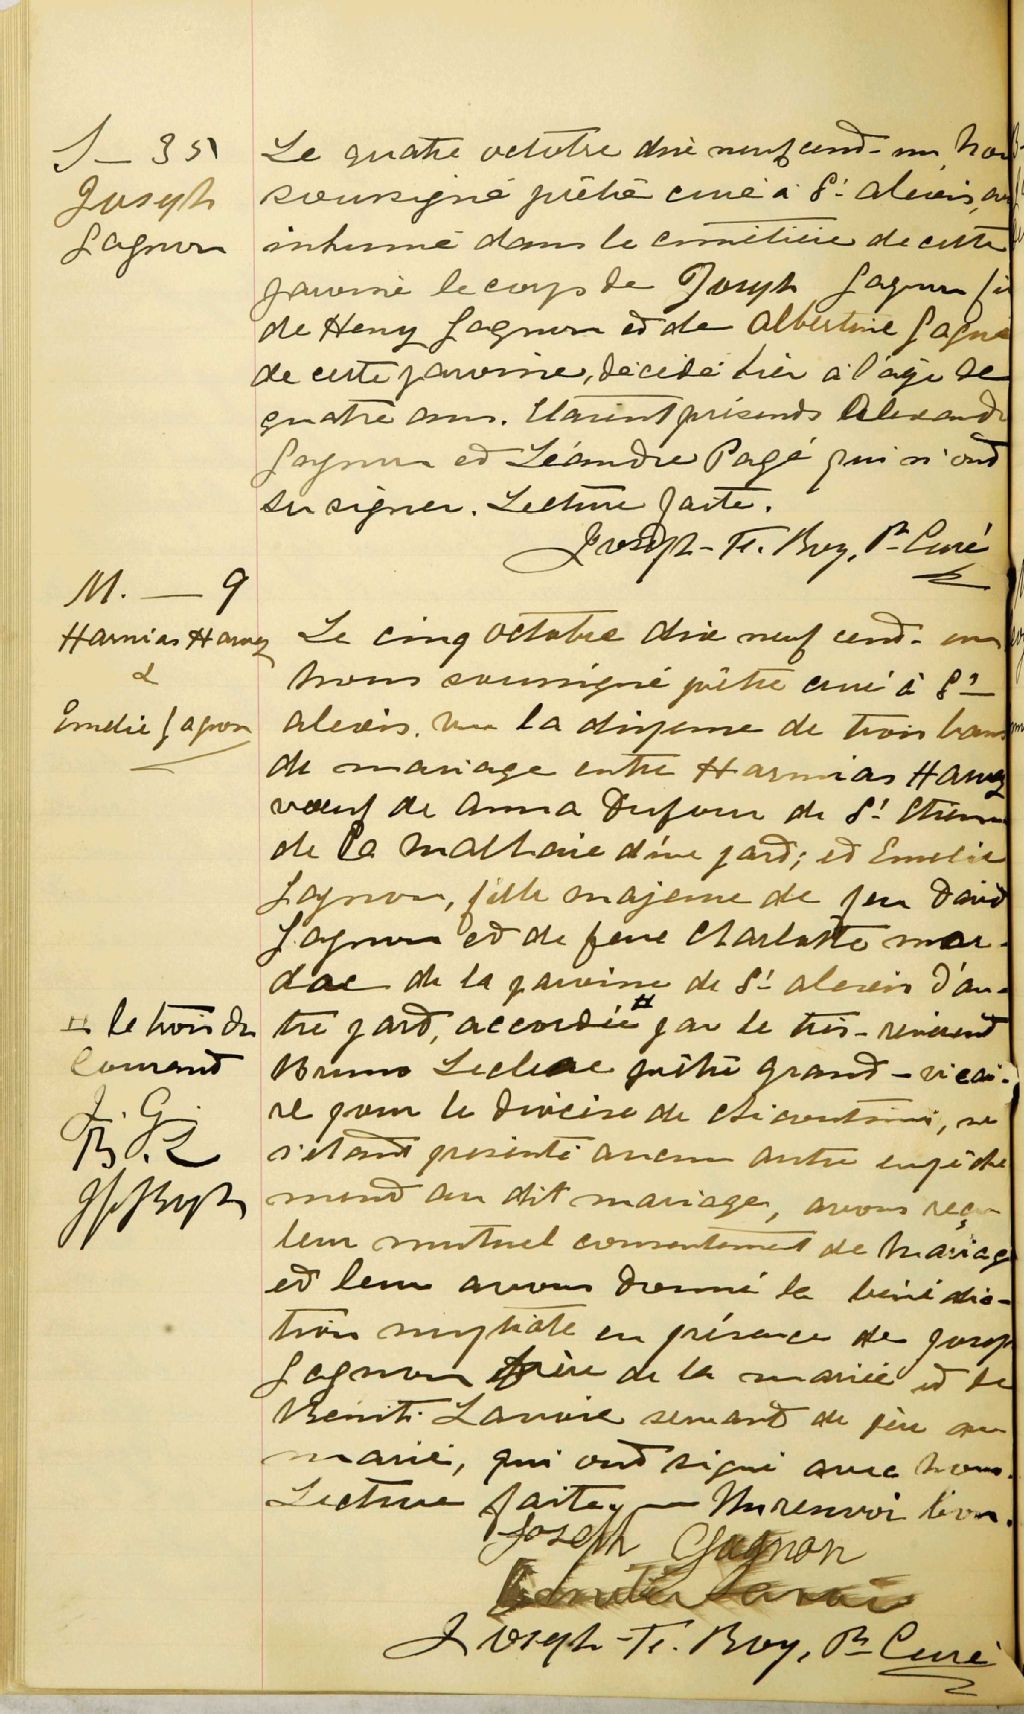 S — 35
Joseph
Gagnon
Le quatre octobre dix neuf cent un, nou
soussigné prêtre curé à St alexis, av
inhumé dans le cimetière de cette
paroisse le corps de Joseph Gagnon fi
de Henry Gagnon et de Albertine Gagné
de cette paroisse, décédé hier à l'âge de
quatre ans. Etaient présents Alexandr
Gagnon et Léandre Pagé qui n'ont
su signer. Lecture faite.
Joseph-Ts. Roy, Ptr Curé
M. — 9
Harmias Harvey
&
Emélie Gagnon
Le cinq octobre dix neuf cent un
nous soussigné prêtre curé à St
alexis, vu la dispense de trois bans
de mariage entre Harmias Harvey
vœuf de Anna Dufour de St Etienne
de La Malbaie d'une part; et Emélie
Gagnon, fille majeure de feu David
Gagnon et de feue Charlotte Mar-
dac de la paroisse de St alexis d'au-
tre part, accordée # par le très-révérend
Bruno Leclerc prêtre grand-vicai-
re pour le diocèse de Chicoutimi, ne
s'étant présenté aucun autre empêche
ment au dit mariage, avons reçu
leur mutuel consentement de mariage
et leur avons donné la bénédic-
tion nuptiale en présence de Josep
Gagnon frère de la mariée et de
Benite Lavoie servant de père au
marié, qui ont signé avec nous.
Lecture faite, un renvoi bon.
# le trois du
Courant
J. G.
B. L
Joseph Gagnon
Lavoie
Joseph-Ts. Roy, Ptr Curé